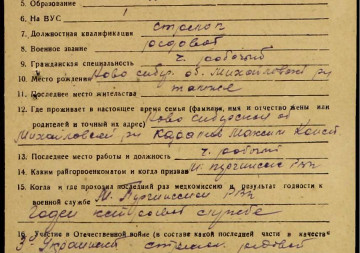 5. Образование
6. На ВУС 1
7. Должностная квалификация стрелок
8. Военное звание рядовой
9. Гражданская специальность ч. рабочий
10. Место рождения Ново сибир. об. Михайловский р-н
11. Последнее место жительства также
12. Где проживает в настоящее время семья (фамилия, имя и отчество жены или
родителей и точный их адрес) Ново Сибирской об
Михайловский р-н Максим Конст.
13. Последнее место работы и должность ч. рабочий
14. Каким райгорвоенкоматом и когда призван РВК
15. Когда и где проходил последний раз медкомиссию и результат годности к
военной службе РВК
Годен службе
16. Участие в Отечественной войне (в составе какой последней части и в качестве
3й Украинский рядовой